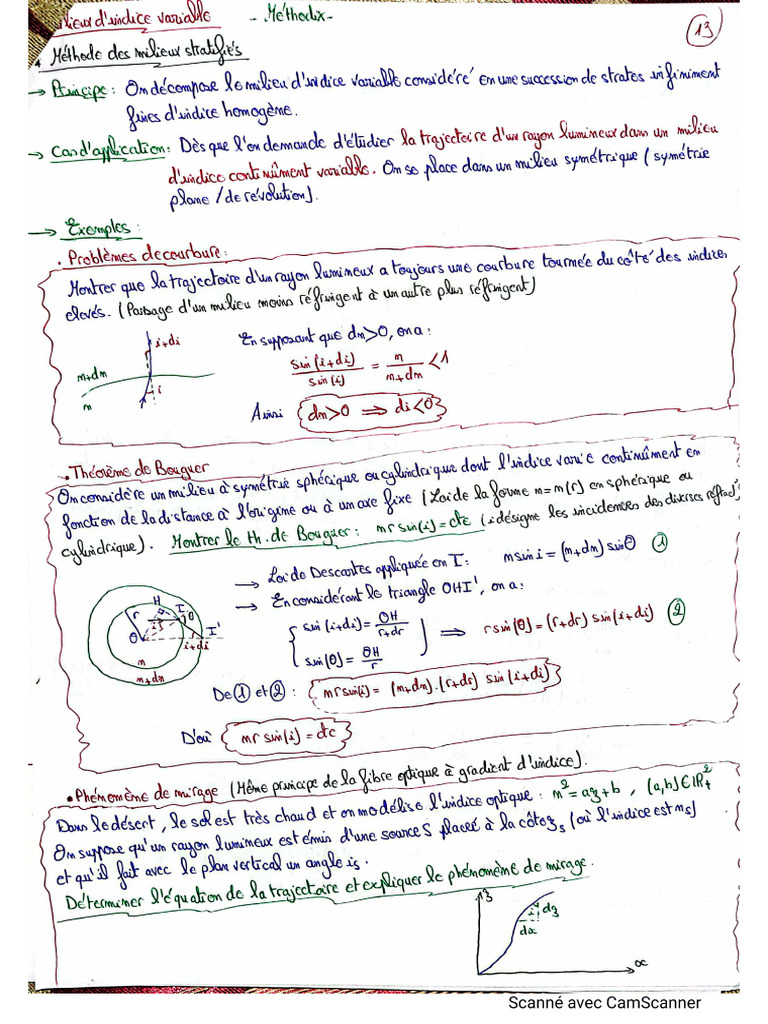 Milieux d'indice variable - Méthodix -
13
Méthode des milieux stratifiés
→ Principe : On décompose le milieu d'indice variable considéré en une succession de strates infiniment
fines d'indice homogène.
→ Cas d'application : Dès que l'on demande d'étudier la trajectoire d'un rayon lumineux dans un milieu
d'indice continûment variable. On se place dans un milieu symétrique (symétrie
plane / de révolution).
→ Exemples :
• Problèmes de courbure :
Montrer que la trajectoire d'un rayon lumineux a toujours une courbure tournée du côté des indices
élevés. (Passage d'un milieu moins réfringent à un autre plus réfringent)
En supposant que dn>0, on a :
sin(i+di)/sin(i) = n/(n+dn) <1
Ainsi (dn>0 ⟹ di<0)
i+di
n+dn
n
i
• Théorème de Bouguer
On considère un milieu à symétrie sphérique ou cylindrique dont l'indice varie continûment en
fonction de la distance à l'origine ou à un axe fixe (Loi de la forme n=n(r) en sphérique ou
cylindrique). Montrer le th. de Bouguer : nr sin(i)=cte (i désigne les incidences des diverses réfract°
→ Loi de Descartes appliquée en I : n sin i = (n+dn) sin θ ①
→ En considérant le triangle OHI', on a :
{ sin(i+di) = OH/(r+dr)
sin(θ) = OH/r } ⟹ r sin(θ) = (r+dr) sin(i+di) ②
H I θ
r i I'
O i+di
n
n+dn
De ① et ② : nr sin(i) = (n+dn).(r+dr) sin(i+di)
D'où nr sin(i) = cte
• Phénomène de mirage (Même principe de la fibre optique à gradient d'indice).
Dans le désert, le sol est très chaud et on modélise l'indice optique : n² = az+b , (a,b)∈ℝ₊²
On suppose qu'un rayon lumineux est émis d'une source S placée à la côte z_s (où l'indice est n_s)
et qu'il fait avec le plan vertical un angle i_s.
Déterminer l'équation de la trajectoire et expliquer le phénomène de mirage.
z
i dz
dx
x
Scanné avec CamScanner